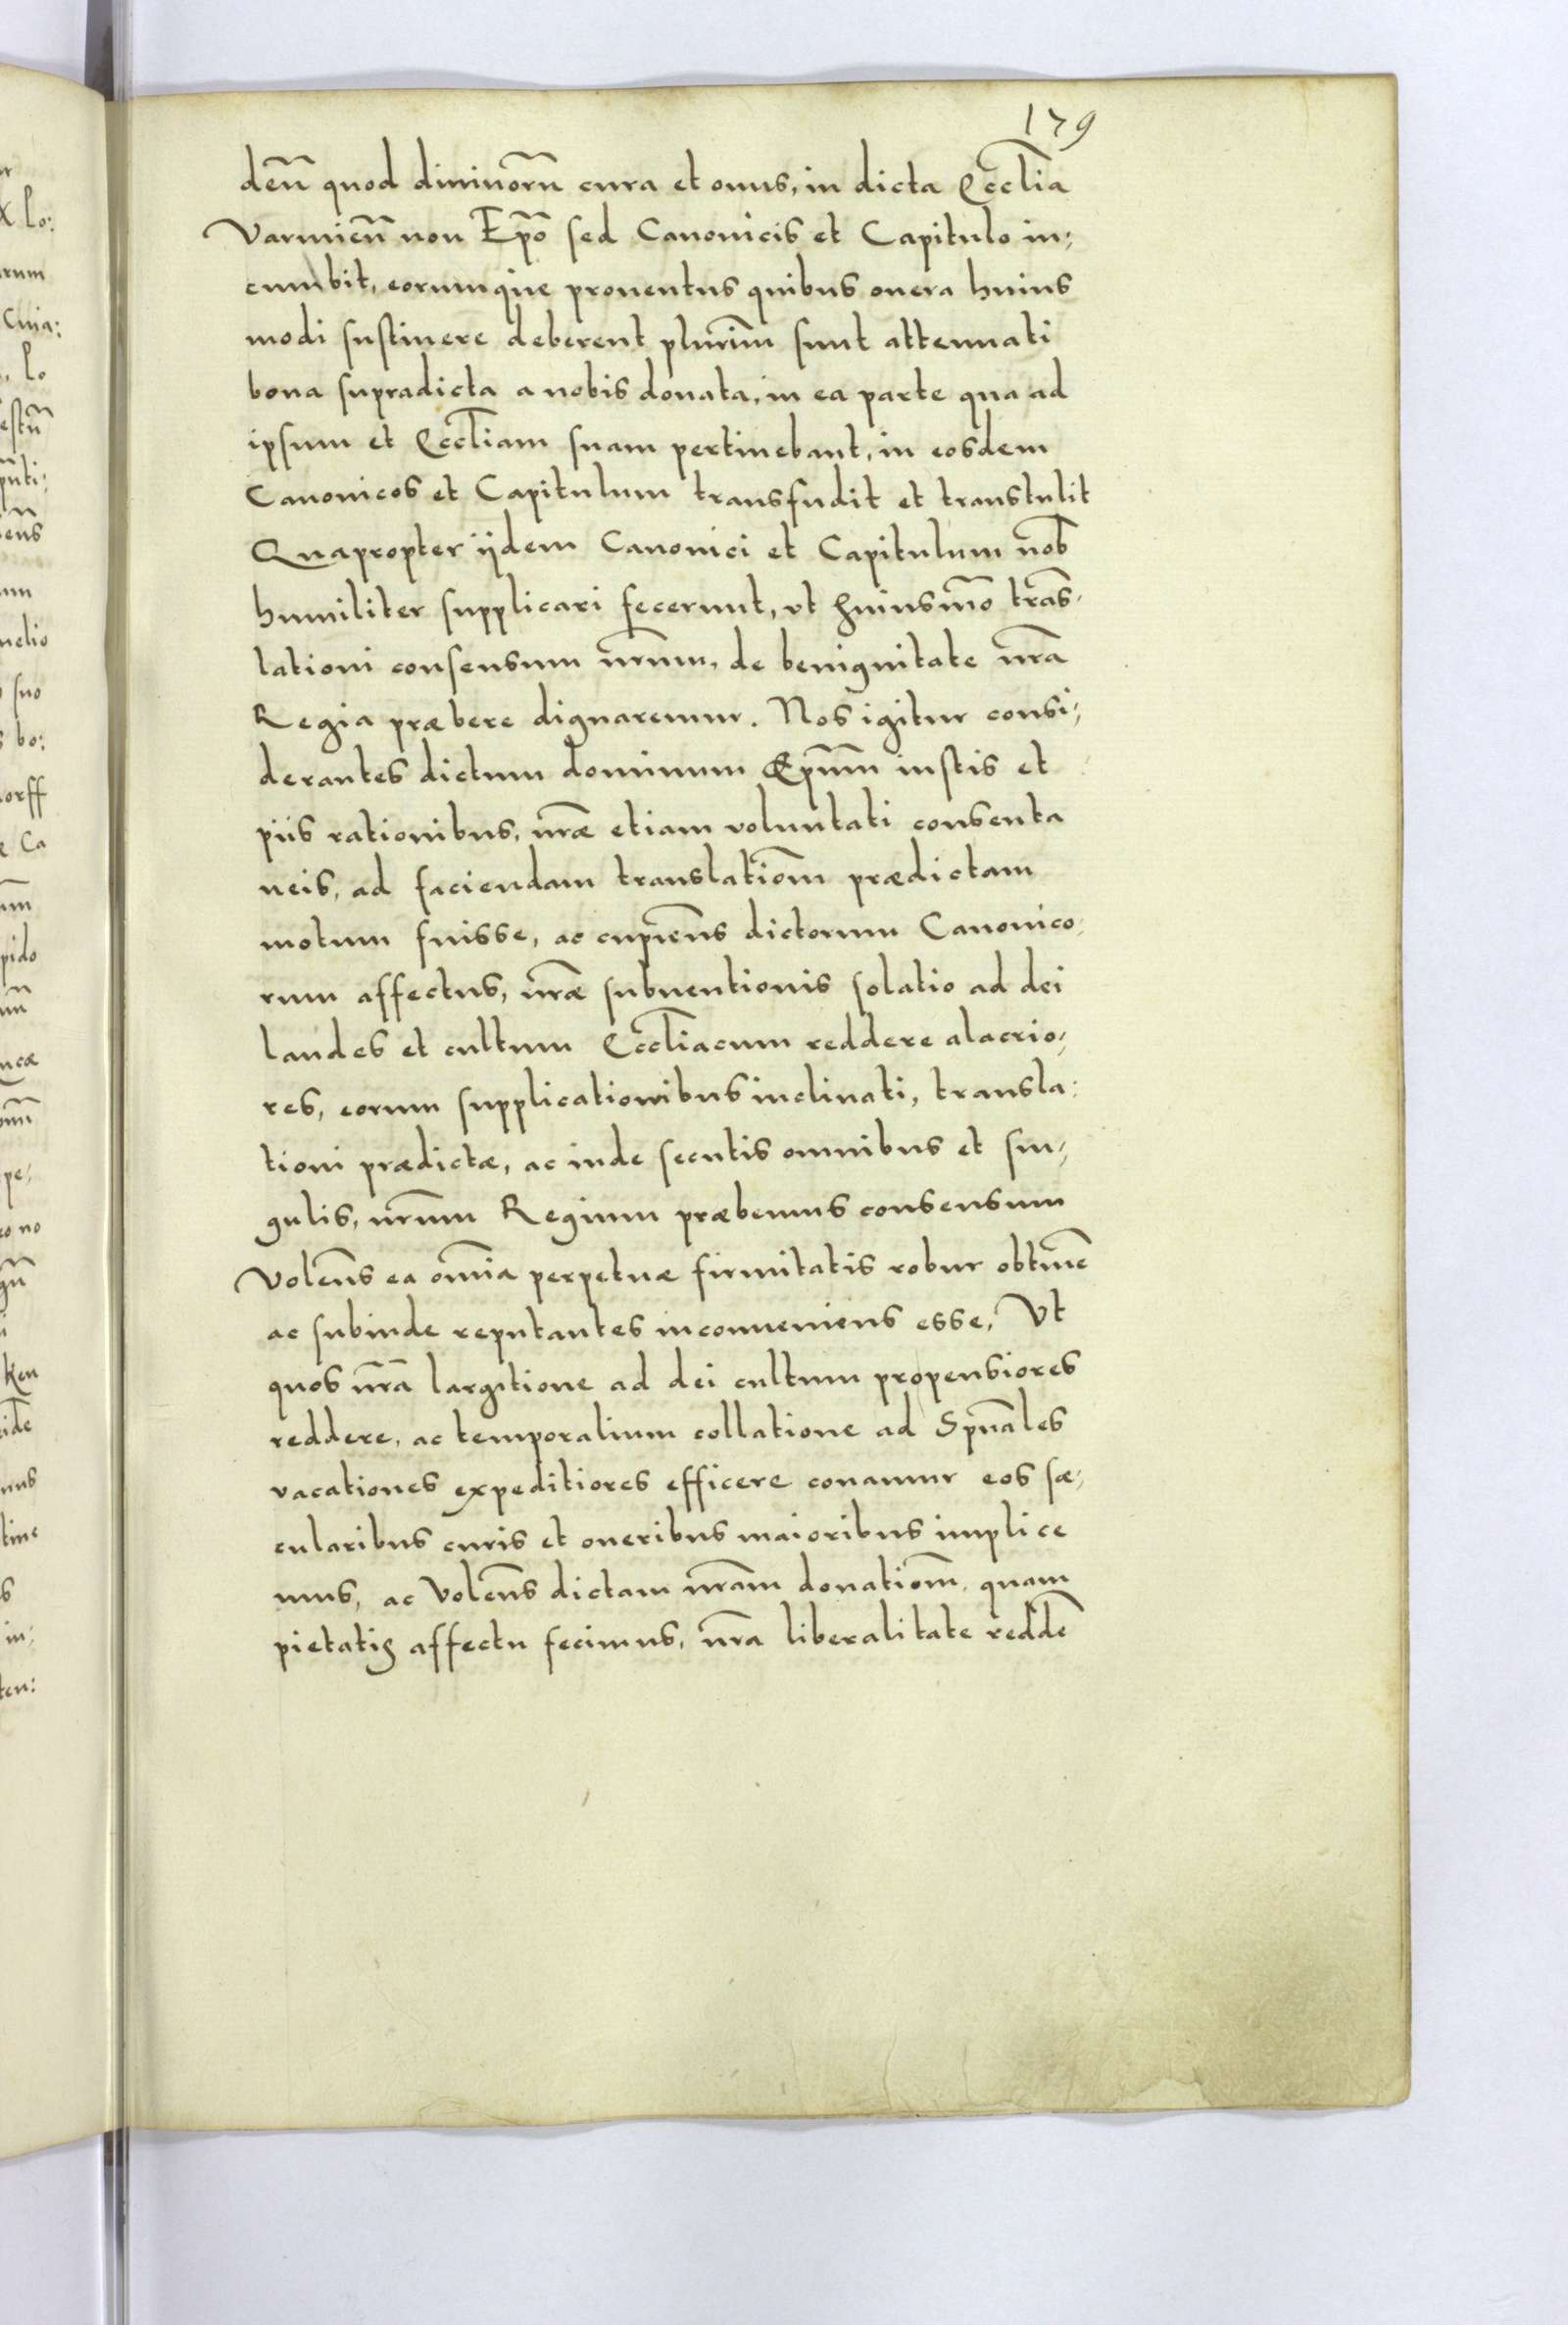 179
deñ quod diuinorũ cura et onus, in dicta Eccl̃ia
Varmieñ non Ep̃o sed Canonicis et Capitulo in,
cumbit, eorumque prouentus quibus onera huius
modi sustinere deberent plurim̃ sunt attenuati
bona supradicta a nobis donata, in ea parte qua ad
ipsum et Eccl̃iam suam pertinebant, in eosdem
Canonicos et Capitulum transfudit et transtulit
Quapropter ijdem Canonici et Capitulum nob̃
humiliter supplicari fecerunt, vt huiusmõ trãs,
lationi consensum nr̃um, de benignitate nr̃a
Regia præbere dignaremur. Nos igitur consi,
derantes dictum dominum Ep̃um iustis et
piis rationibus, nr̃æ etiam voluntati consenta
neis, ad faciendam translatiom̃ prædictam
motum fuisse, ac cupieñs dictorum Canonico,
rum affectus, nr̃æ subuentionis solatio ad dei
laudes et cultum Eccl̃iacum reddere alacrio,
res, eorum supplicationibus inclinati, transla:
tioni prædictæ, ac inde secutis omnibus et sin,
gulis, nr̃um Regium præbemus consensum
Voleñs ea om̃ia perpetuæ firmitatis robur obtinẽ
ac subinde reputantes inconueniens esse, Vt
quos nr̃a largitione ad dei cultum propensiores
reddere, ac temporalium collatione ad Spũales
vacationes expeditiores efficere conamur eos sæ,
cularibus curis et oneribus maioribus implice
mus, ac Voleñs dictam nr̃am donatiom̃, quam
pietatis affectu fecimus, nr̃a liberalitate reddẽ